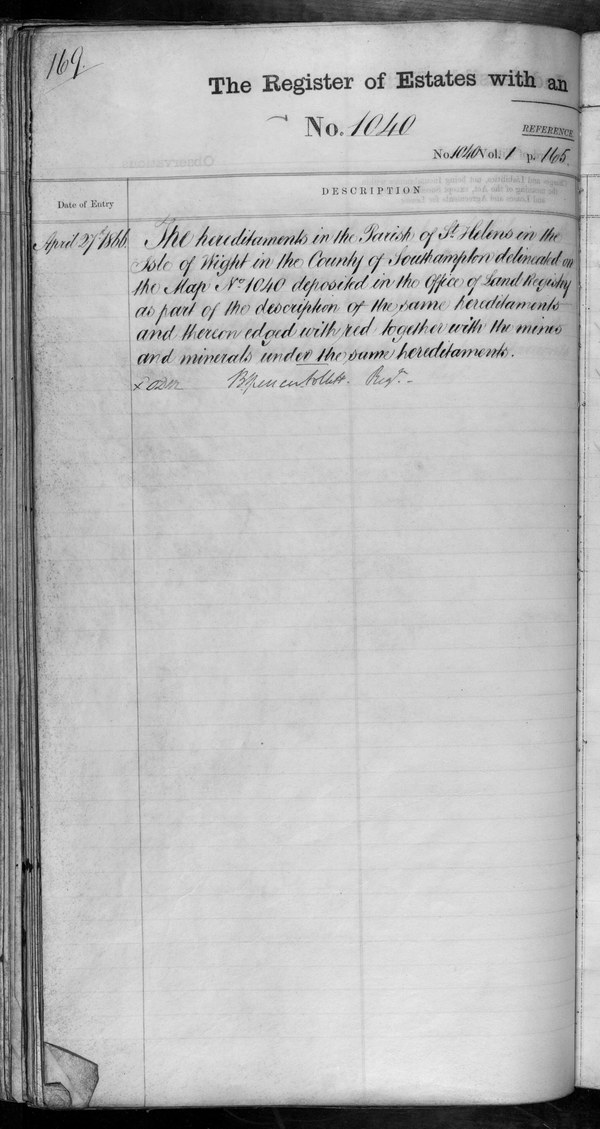 169.
The Register of Estates with an
No. 1040
REFERENCE
No 1040 Vol. 1 p. 165
Date of Entry
DESCRIPTION
April 27th 1866
The hereditaments in the Parish of St. Helens in the
Isle of Wight in the County of Southampton delineated on
the Map No. 1040 deposited in the Office of Land Registry
as part of the description of the same hereditaments
and thereon edged with red together with the mines
and minerals under the same hereditaments.
Regr.